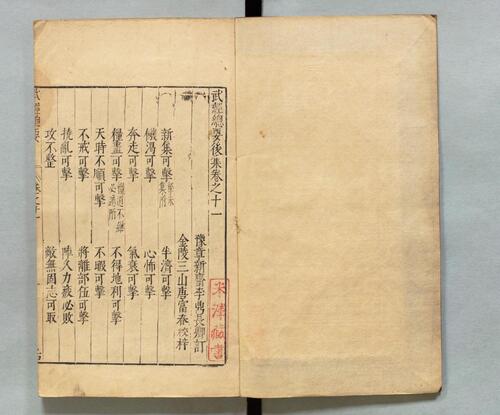 武經總要後集卷之十一
豫章新喻李鼎長卿訂
金陵三山唐富春校梓
新集可擊 半濟可擊
饑渴可擊 心怖可擊
奔走可擊 氣衰可擊
糧盡可擊 不得地利可擊
天時不順可擊 不暇可擊
不戒可擊 將離部伍可擊
撓亂可擊 陣久力疲必敗
攻不整 敵無固志可取
武經總要